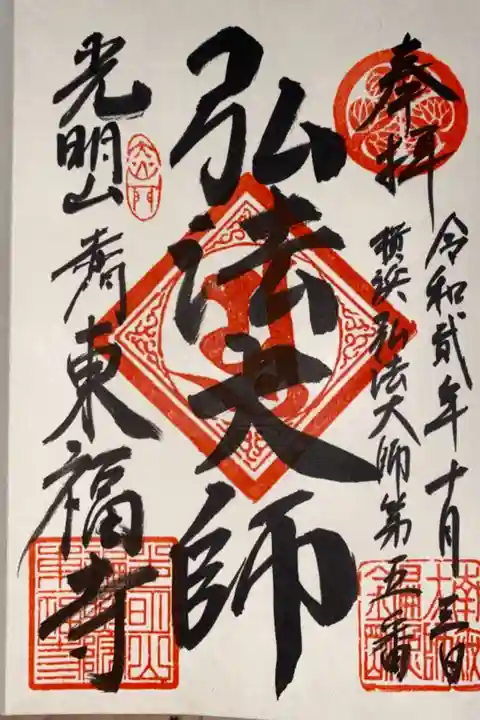 奉拝
令和貳年十月三日
横浜弘法大師第五番
弘法大師
光明山
東福寺